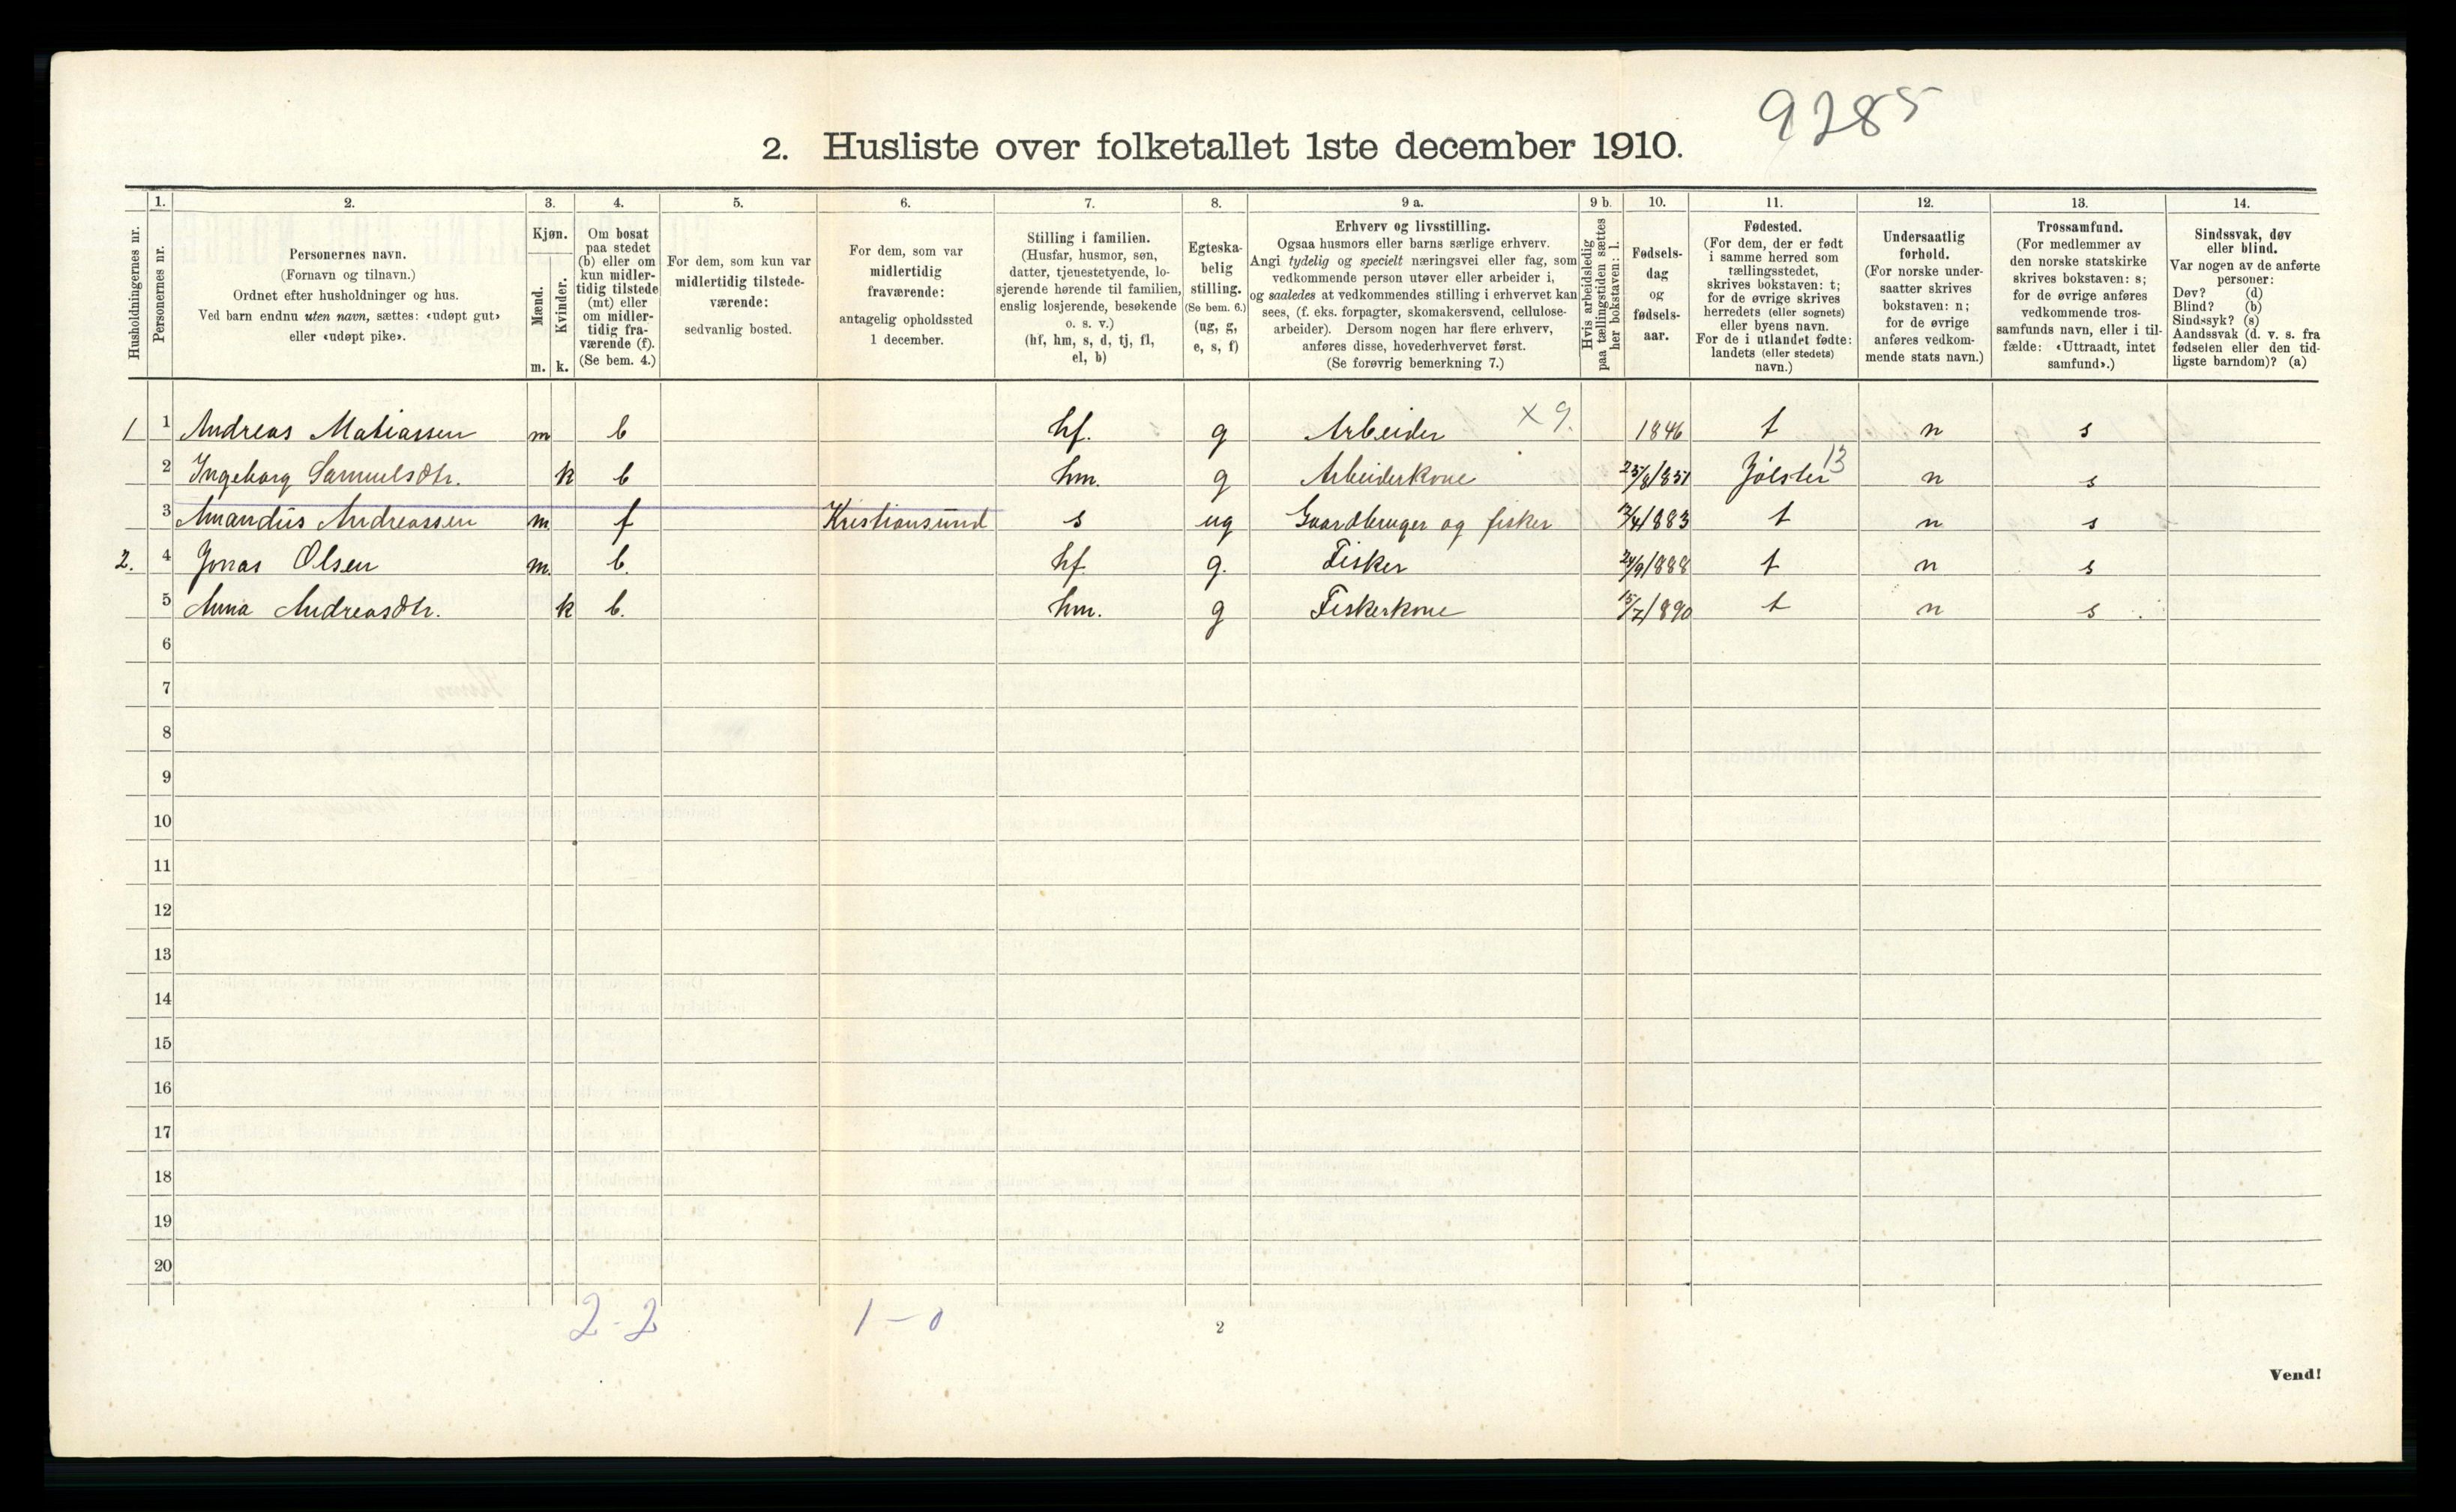 9285
2. Husliste over folketallet 1ste december 1910.
1. 2. 3. 4. 5. 6. 7. 8. 9 a. 9 b. 10. 11. 12. 13. 14.
Husholdningernes nr.
Personernes nr.
Personernes navn.
(Fornavn og tilnavn.)
Ordnet efter husholdninger og hus.
Ved barn endnu uten navn, sættes: «udøpt gut»
eller «udøpt pike».
Kjøn.
Mænd.
Kvinder.
m. k.
Om bosat
paa stedet
(b) eller om
kun midler-
tidig tilstede
(mt) eller
om midler-
tidig fra-
værende (f).
(Se bem. 4.)
For dem, som kun var
midlertidig tilstede-
værende:
sedvanlig bosted.
For dem, som var
midlertidig
fraværende:
antagelig opholdssted
1 december.
Stilling i familien.
(Husfar, husmor, søn,
datter, tjenestetyende, lo-
sjerende hørende til familien,
enslig losjerende, besøkende
o. s. v.)
(hf, hm, s, d, tj, fl,
el, b)
Egteska-
belig
stilling.
(Se bem. 6.)
(ug, g,
e, s, f)
Erhverv og livsstilling.
Ogsaa husmors eller barns særlige erhverv.
Angi tydelig og specielt næringsvei eller fag, som
vedkommende person utøver eller arbeider i,
og saaledes at vedkommendes stilling i erhvervet kan
sees, (f. eks. forpagter, skomakersvend, cellulose-
arbeider). Dersom nogen har flere erhverv,
anføres disse, hovederhvervet først.
(Se forøvrig bemerkning 7.)
Hvis arbeidsledig
paa tællingstiden sættes
her bokstaven: l.
Fødsels-
dag
og
fødsels-
aar.
Fødested.
(For dem, der er født
i samme herred som
tællingsstedet,
skrives bokstaven: t;
for de øvrige skrives
herredets (eller sognets)
eller byens navn.
For de i utlandet fødte:
landets (eller stedets)
navn.)
Undersaatlig
forhold.
(For norske under-
saatter skrives
bokstaven: n;
for de øvrige
anføres vedkom-
mende stats navn.)
Trossamfund.
(For medlemmer av
den norske statskirke
skrives bokstaven: s;
for de øvrige anføres
vedkommende tros-
samfunds navn, eller i til-
fælde: «Uttraadt, intet
samfund».)
Sindssvak, døv
eller blind.
Var nogen av de anførte
personer:
Døv? (d)
Blind? (b)
Sindssyk? (s)
Aandssvak (d. v. s. fra
fødselen eller den tid-
ligste barndom)? (a)
1 1 Andreas Matiassen m b hf. g Arbeider x 9. 1846 t n s
2 Ingeborg Samuelsdtr. k b hm. g Arbeiderkone 25/8/851 Jølster 13 n s
3 Amandus Andreassen m f Kristiansund s ug Gaardbruger og fisker 12/4/883 t n s
2. 4 Jonas Olsen m. b. hf. g. Fisker 24/9/888 t n s
5 Anna Andreasdtr. k b. hm. g Fiskerkone 15/7/890 t n s
6
7
8
9
10
11
12
13
14
15
16
17
18
19
20
2-2 1-0
2
Vend!